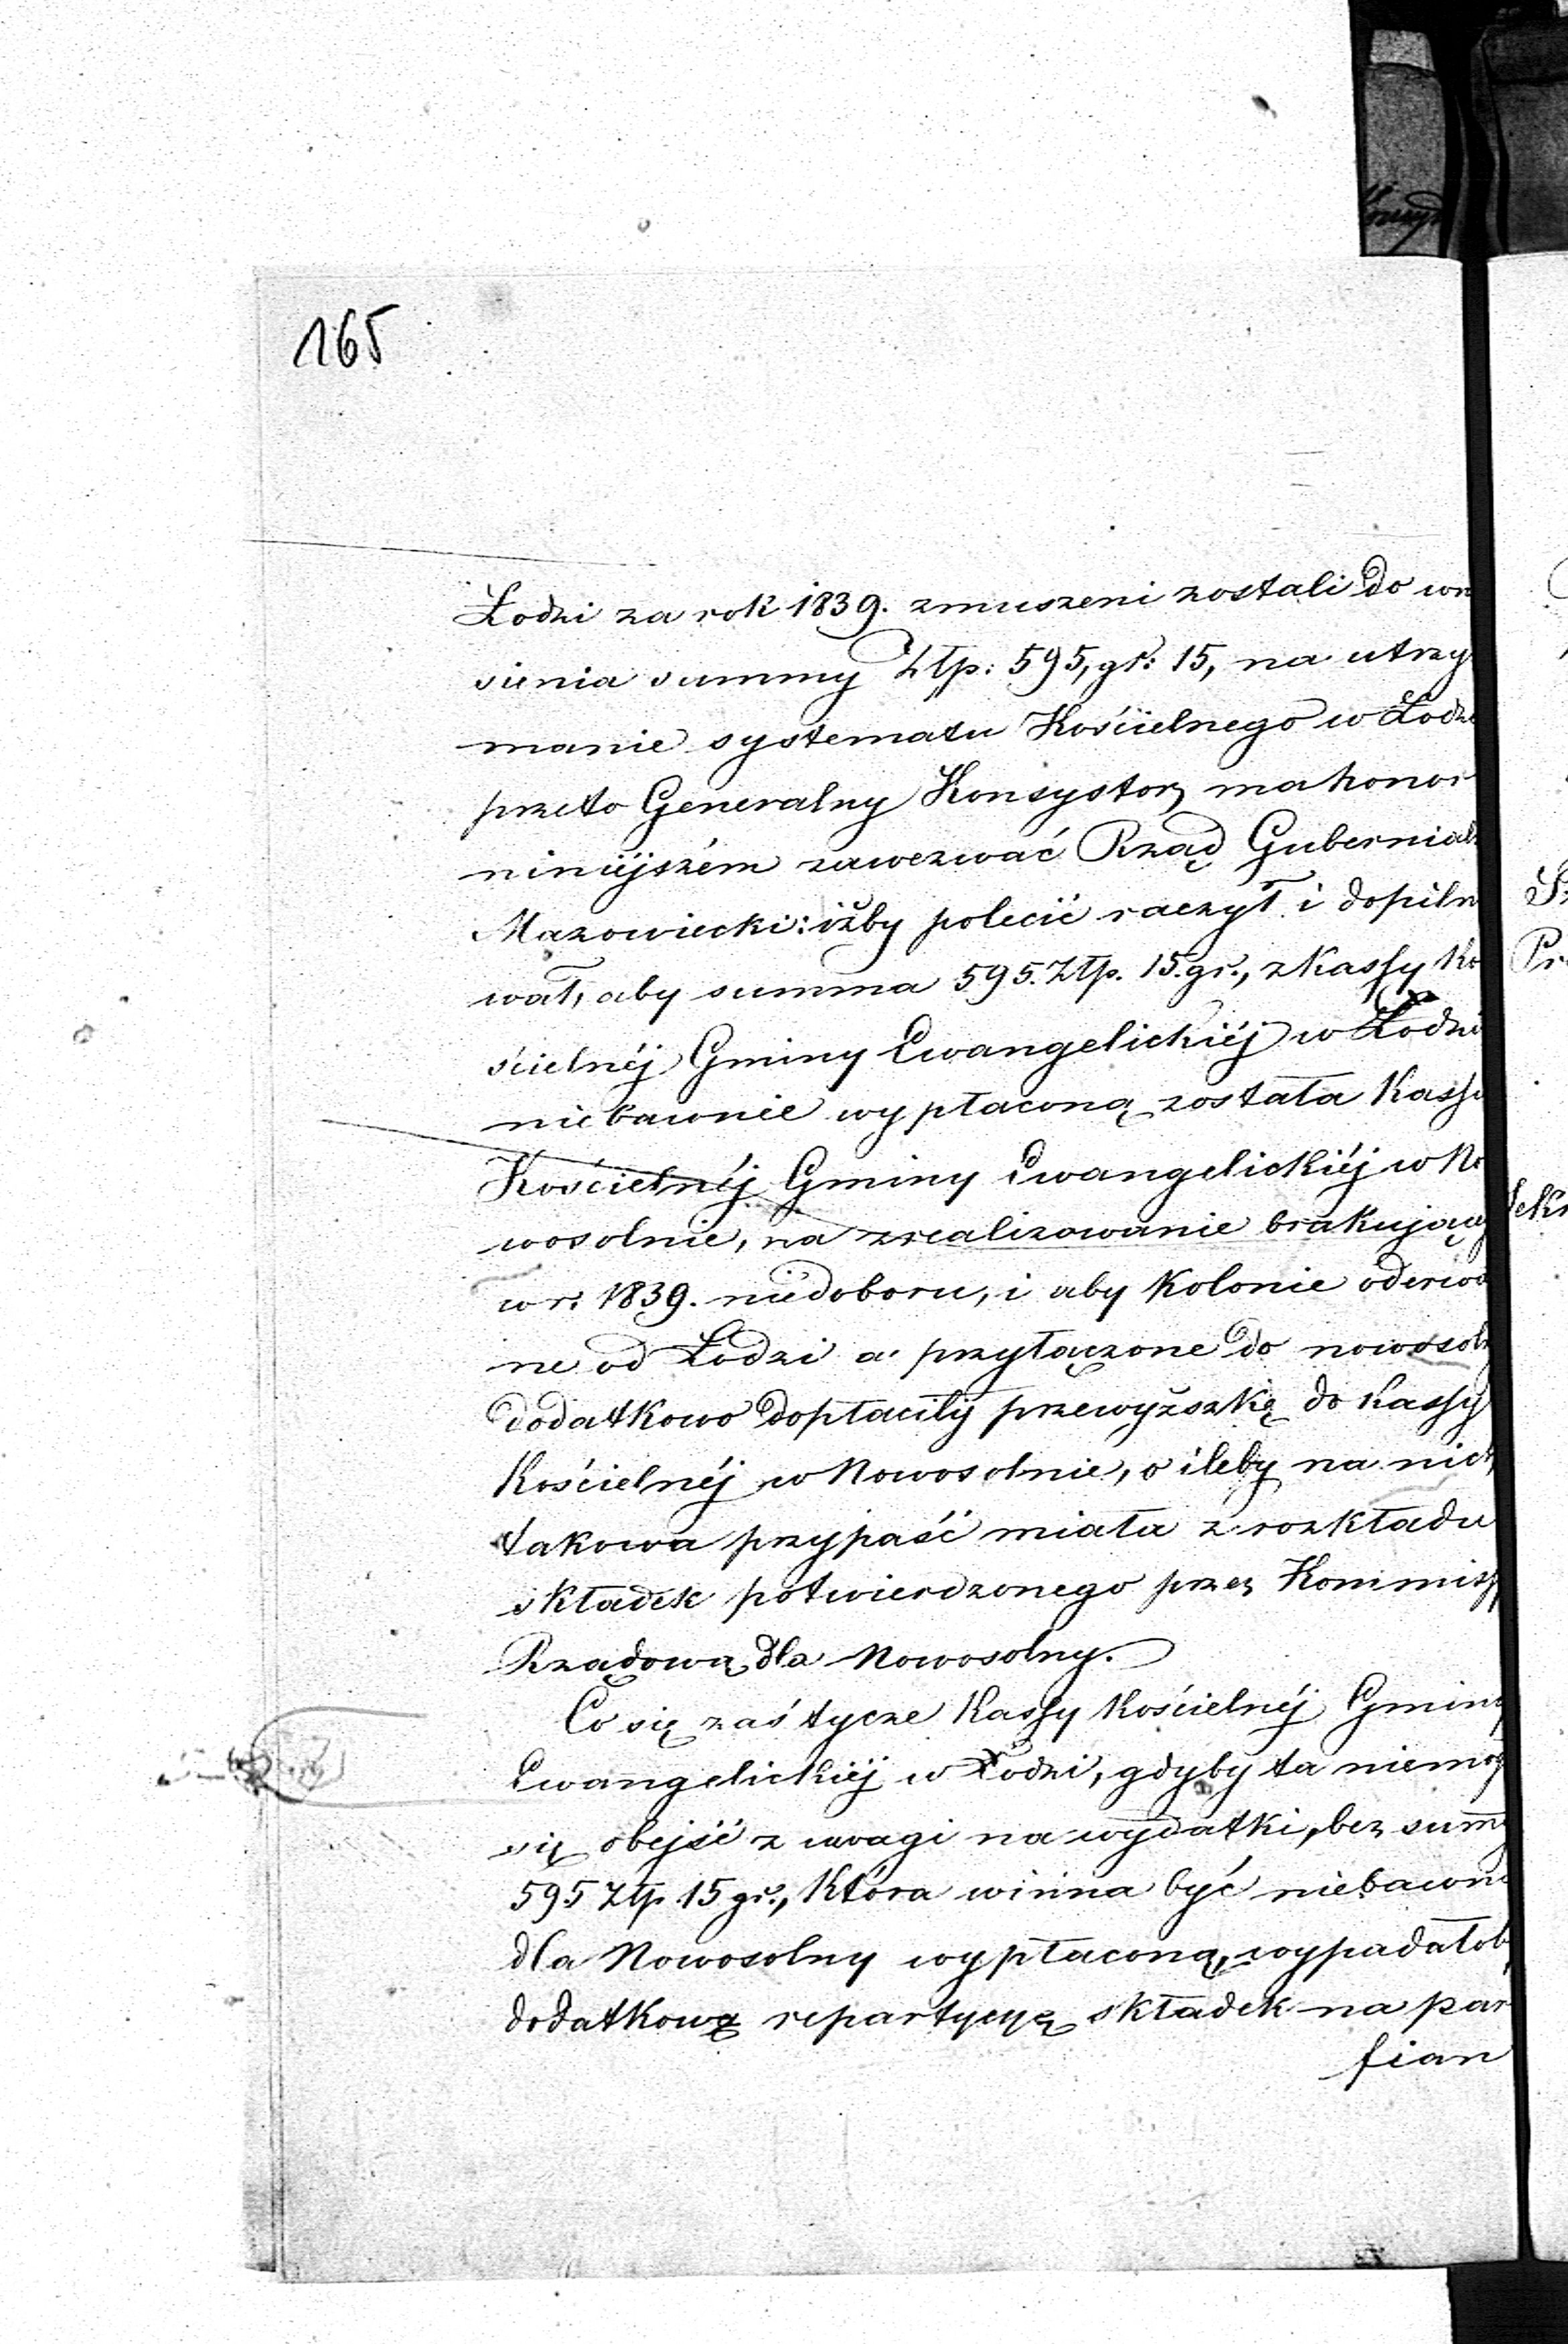 165
Łodzi za rok 1839. zmuszeni zostali do wn
sienia summy Złp: 595, gr: 15, na utrzy
manie systematu Kościelnego w Łodzi
przeto Generalny Konsystorz ma honor
niniejszém zawezwać Rząd Gubernial
Mazowiecki: iżby polecić raczył i dopiln
wał, aby summa 595. Złp. 15. gr., z Kassy Ko
ścielnéj Gminy Ewangelickiéj w Łodzi
niebawnie wypłaconą została Kassie
Kościelnéj Gminy Ewangelickiéj w No
wosolnie, na zrealizowanie brakując
w r. 1839. niedoboru, i aby Kolonie oderwa
ne od Łodzi a przyłączone do nowosoln
dodatkowo dopłaciły przewyższkę do Kassy
Kościelnéj w Nowosolnie, o ileby na nich
takowa przypaść miała z rozkładu
składek potwierdzonego przez Kommiss
Rządową dla Nowosolny.
Co się zaś tycze Kassy Kościelnéj Gminy
Ewangelickiéj w Łodzi, gdyby ta niemog
się obejść z uwagi na wydatki, bez summy
595 Złp 15 gr., która winna być niebawni
dla Nowosolny wypłaconą, wypadałob
dodatkową repartycyę składek na par
fian